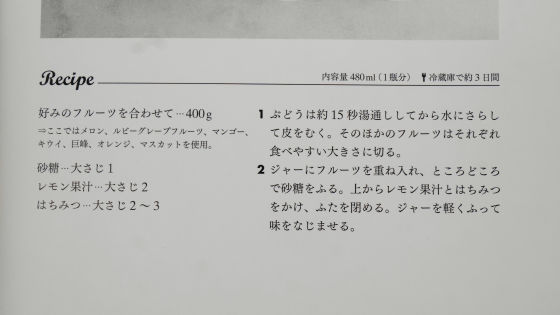 Recipe
内容量 480ml（1瓶分） 冷蔵庫で約3日間
好みのフルーツを合わせて…400g
⇒ここではメロン、ルビーグレープフルーツ、マンゴー、
キウイ、巨峰、オレンジ、マスカットを使用。
砂糖…大さじ1
レモン果汁…大さじ2
はちみつ…大さじ2〜3
1 ぶどうは約15秒湯通ししてから水にさらし
て皮をむく。そのほかのフルーツはそれぞれ
食べやすい大きさに切る。
2 ジャーにフルーツを重ね入れ、ところどころ
で砂糖をふる。上からレモン果汁とはちみつ
をかけ、ふたを閉める。ジャーを軽くふって
味をなじませる。